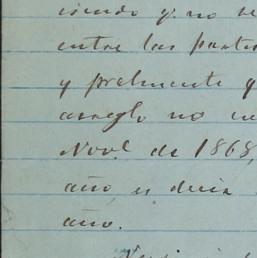 siendo y no se
entre las parte
y prelmente q
arreglo no
Novbl. de 1868,
año, es decir
año.